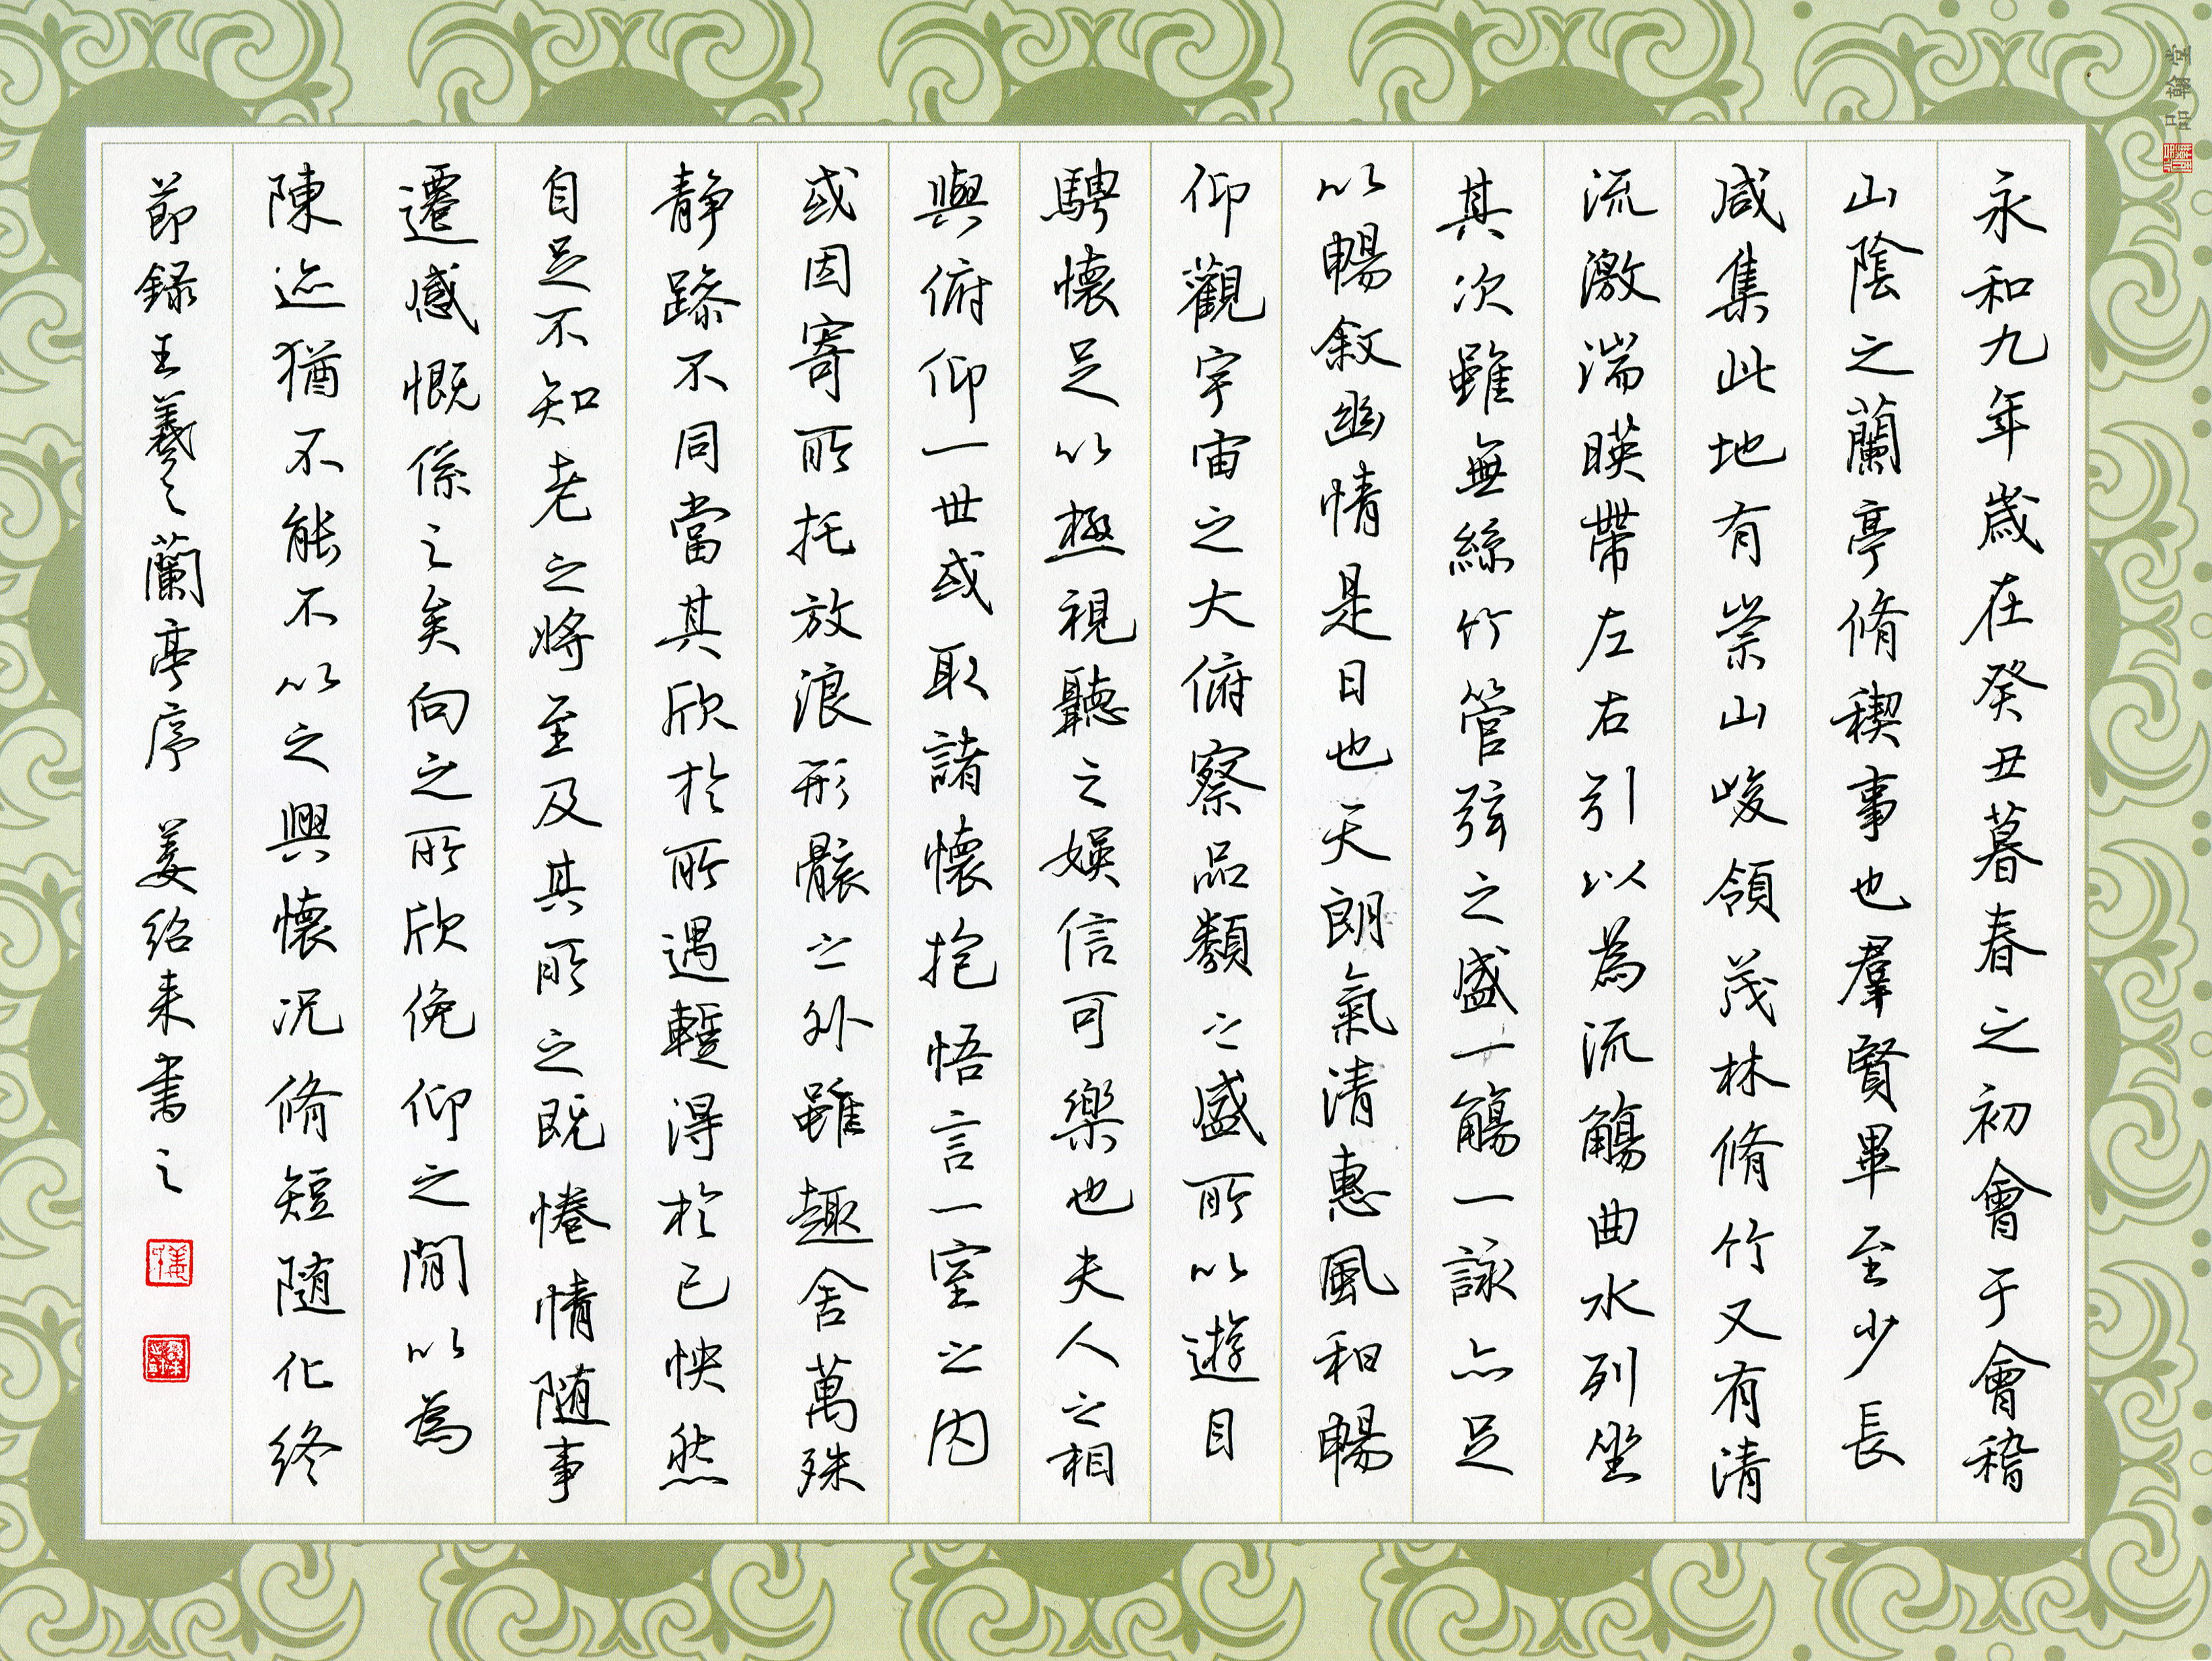 永和九年歲在癸丑暮春之初會于會稽
山陰之蘭亭脩稧事也羣賢畢至少長
咸集此地有崇山峻領茂林脩竹又有清
流激湍暎帶左右引以為流觴曲水列坐
其次雖無絲竹管弦之盛一觴一詠亦足
以暢敘幽情是日也天朗氣清惠風和暢
仰觀宇宙之大俯察品類之盛所以遊目
騁懷足以極視聽之娛信可樂也夫人之相
與俯仰一世或取諸懷抱悟言一室之內
或因寄所托放浪形骸之外雖趣舍萬殊
靜躁不同當其欣於所遇蹔得於己怏然
自足不知老之將至及其所之既惓情隨事
遷感慨係之矣向之所欣俛仰之閒以為
陳迹猶不能不以之興懷況脩短隨化終
節錄王羲之蘭亭序 姜紹來書之
品翰堂